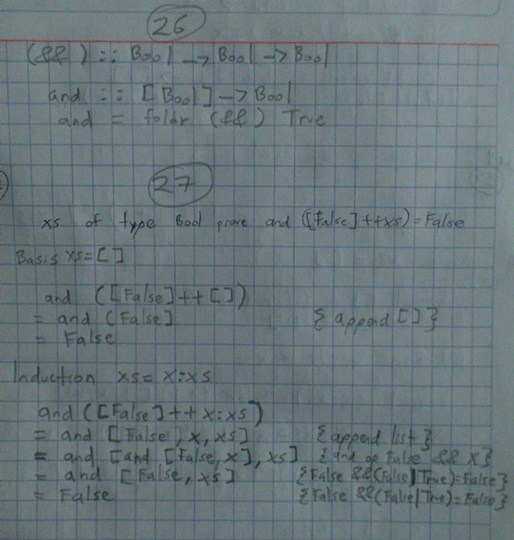 26
(&&) :: Bool -> Bool -> Bool
and :: [Bool] -> Bool
and = foldr (&&) True
27
xs of type Bool prove and ([False]++xs)=False
Basis xs=[]
and ([False]++[])
= and (False] {append []}
= False
Induction xs= x:xs
and([False]++x:xs)
= and [False, x, xs] {append list}
= and [and [False, x], xs] {and of False && x}
= and [False, xs] {False &&(False|True)=False}
= False {False &&(False|True)=False}